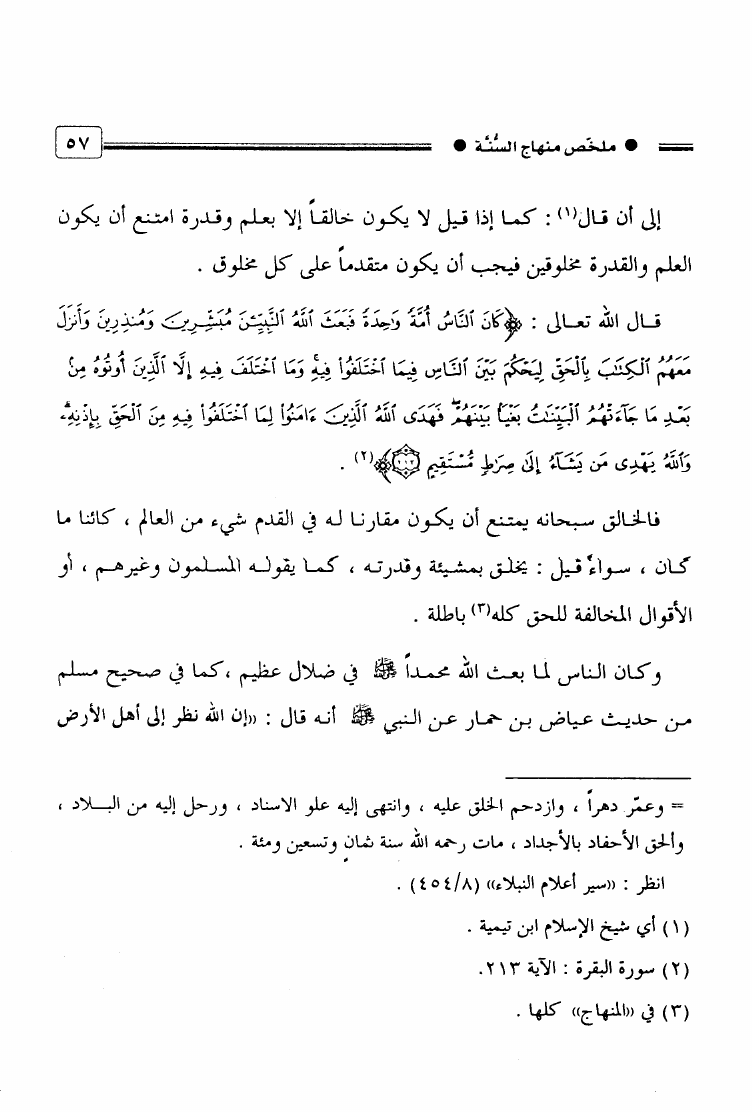 ● ملخّص منهاج السُّنَّة ●
٥٧
إلى أن قال(١) : كما إذا قيل لا يكون خالقاً إلا بعلم وقدرة امتنع أن يكون
العلم والقدرة مخلوقين فيجب أن يكون متقدماً على كل مخلوق .
قال الله تعالى : ﴿كَانَ ٱلنَّاسُ أُمَّةً وَٰحِدَةً فَبَعَثَ ٱللَّهُ ٱلنَّبِيِّـۧنَ مُبَشِّرِينَ وَمُنذِرِينَ وَأَنزَلَ
مَعَهُمُ ٱلْكِتَٰبَ بِٱلْحَقِّ لِيَحْكُمَ بَيْنَ ٱلنَّاسِ فِيمَا ٱخْتَلَفُوا۟ فِيهِ ۚ وَمَا ٱخْتَلَفَ فِيهِ إِلَّا ٱلَّذِينَ أُوتُوهُ مِنۢ
بَعْدِ مَا جَآءَتْهُمُ ٱلْبَيِّنَٰتُ بَغْيًۢا بَيْنَهُمْ ۖ فَهَدَى ٱللَّهُ ٱلَّذِينَ ءَامَنُوا۟ لِمَا ٱخْتَلَفُوا۟ فِيهِ مِنَ ٱلْحَقِّ بِإِذْنِهِۦ ۗ
وَٱللَّهُ يَهْدِى مَن يَشَآءُ إِلَىٰ صِرَٰطٍ مُّسْتَقِيمٍ ٢١٣﴾(٢) .
فالخالق سبحانه يمتنع أن يكون مقارنا له في القدم شيء من العالم ، كائنا ما
كان ، سواءً قيل : يخلق بمشيئة وقدرته ، كما يقوله المسلمون وغيرهم ، أو
الأقوال المخالفة للحق كله(٣) باطلة .
وكان الناس لما بعث الله محمداً ﷺ في ضلال عظيم ، كما في صحيح مسلم
من حديث عياض بن حمار عن النبي ﷺ أنه قال : «إن الله نظر إلى أهل الأرض
= وعمّر دهراً ، وازدحم الخلق عليه ، وانتهى إليه علو الاسناد ، ورحل إليه من البلاد ،
وألحق الأحفاد بالأجداد ، مات رحمه الله سنة ثمانٍ وتسعين ومئة .
انظر : «سير أعلام النبلاء» (٤٥٤/٨) .
(١) أي شيخ الإسلام ابن تيمية .
(٢) سورة البقرة : الآية ٢١٣.
(٣) في «المنهاج» كلها .